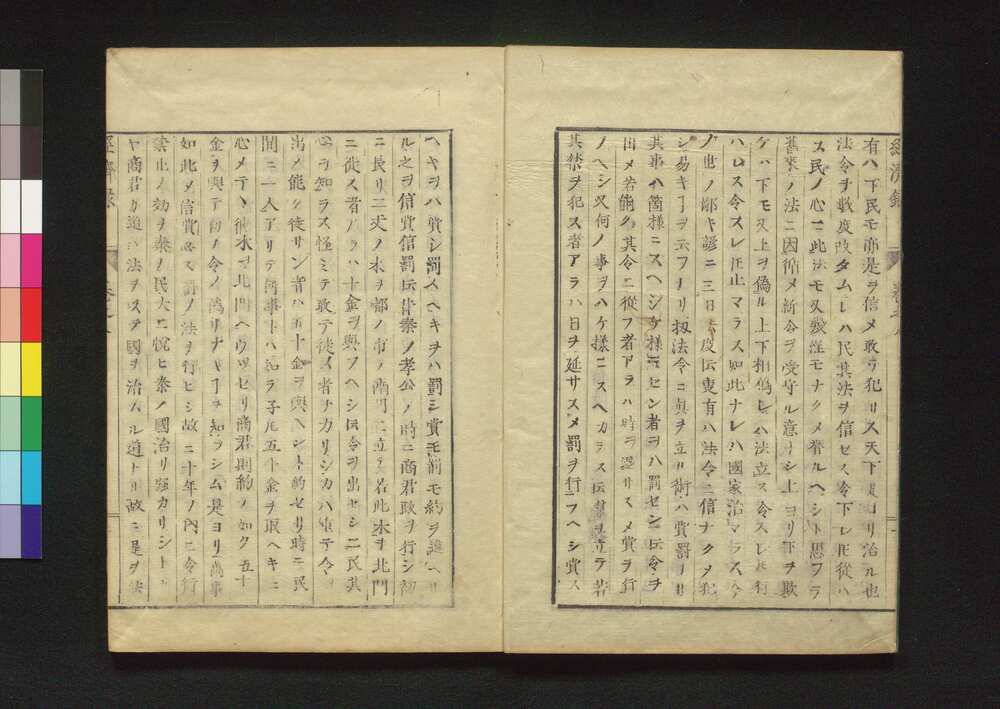 有ハ下民モ亦是ヲ信メ敢テ犯サス天下是ヨリ治ル也
法令ヲ數度改タムレハ民其法ヲ信セス令下レ𪜈從ハ
ス民ノ心ニ此法モ又數

モナクメ替ルヘシト思フテ
舊來ノ法ニ因循メ新令ヲ受守ル意ナシ上ヨリ下ヲ欺
ケハ下モ又上ヲ偽ル上下相偽レハ法立ス令スレ𪜈行
ハレス令スレ𪜈止マラス如此ナレハ國家治マラス今
ノ世ノ鄙キ諺ニ三日法度ト云事有ハ法令ニ信ナクメ犯
シ易キヿヲ云フナリ扨法令ニ信ヲ立ル術ハ賞罰ナリ
其事ハ箇樣ニスヘシケ樣ニセン者ヲハ罰セシト云令ヲ
出メ若能ク其令ニ從フ者アラハ時ヲ過サスメ賞ヲ行
ノヘシ又何ノ事ヲハケ樣ニスヘカラスト云令ヲ出テ若
其禁ヲ犯ス者アラハ日ヲ延サスメ罰ヲ行フヘシ賞ス
ヘキヲハ賞シ罰スヘキヲハ罰シ賞モ罰モ約ヲ違ヘサ
ル之ヲ信賞信罰ト云昔秦ノ孝公ノ時ニ商君政ヲ行シ初
ニ長サ二丈ノ木ヲ都ノ市ノ南門ニ立テ若此木ヲ北門
ニ徙ス者アラハ十金ヲ與フヘシト云令ヲ出セシニ民其
心ヲ知ラス怪ミテ敢テ徙ス者ナカリシカハ重テ令ヲ
出メ能ク徙サン者ハ五十金ヲ與ヘント約セリ時ニ民
間ニ一人アリテ何事トハ知ラ子𪜈五十金ヲ取ヘキニ
心メテヽ彼木ヲ北門ヘウツセリ商君則約ノ如ク五十
金ヲ與テ初ノ令ノ偽リナキヿヲ知ラシム是ヨリ萬事
如此メ信賞必ス罰ノ法ヲ行ヒシ故ニ十年ノ內ニ令行
禁止ノ効ヲ奏メ民大ニ悅ヒ秦ノ國治リ強カリシトカ
ヤ商君カ道ハ法ヲ以テ國ヲ治ムル道ナリ故ニ是ヲ法
經濟録
經濟録